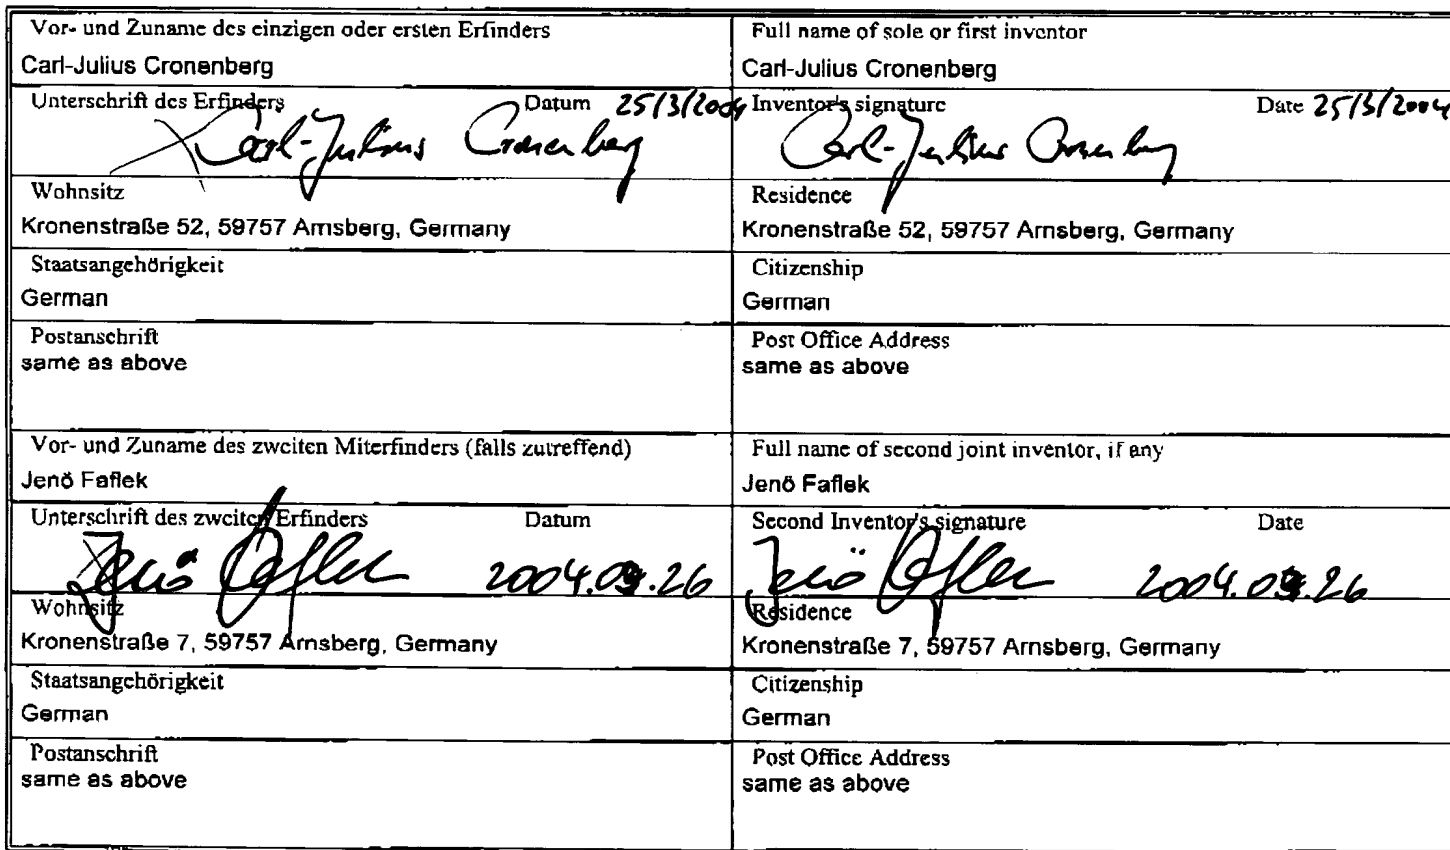 Vor- und Zuname des einzigen oder ersten Erfinders
Carl-Julius Cronenberg
Unterschrift des Erfinders Datum 25/3/2004
Carl-Julius Cronenberg
Wohnsitz
Kronenstraße 52, 59757 Arnsberg, Germany
Staatsangehörigkeit
German
Postanschrift
same as above
Vor- und Zuname des zweiten Miterfinders (falls zutreffend)
Jenö Faflek
Unterschrift des zweiten Erfinders Datum
Jenö Faflek
Wohnsitz
Kronenstraße 7, 59757 Arnsberg, Germany
Staatsangehörigkeit
German
Postanschrift
same as above
Full name of sole or first inventor
Carl-Julius Cronenberg
Inventor's signature Date 25/3/2004
Carl-Julius Cronenberg
Residence
Kronenstraße 52, 59757 Arnsberg, Germany
Citizenship
German
Post Office Address
same as above
Full name of second joint inventor, if any
Jenö Faflek
Second Inventor's signature Date
Jenö Faflek
Residence
Kronenstraße 7, 59757 Arnsberg, Germany
Citizenship
German
Post Office Address
same as above